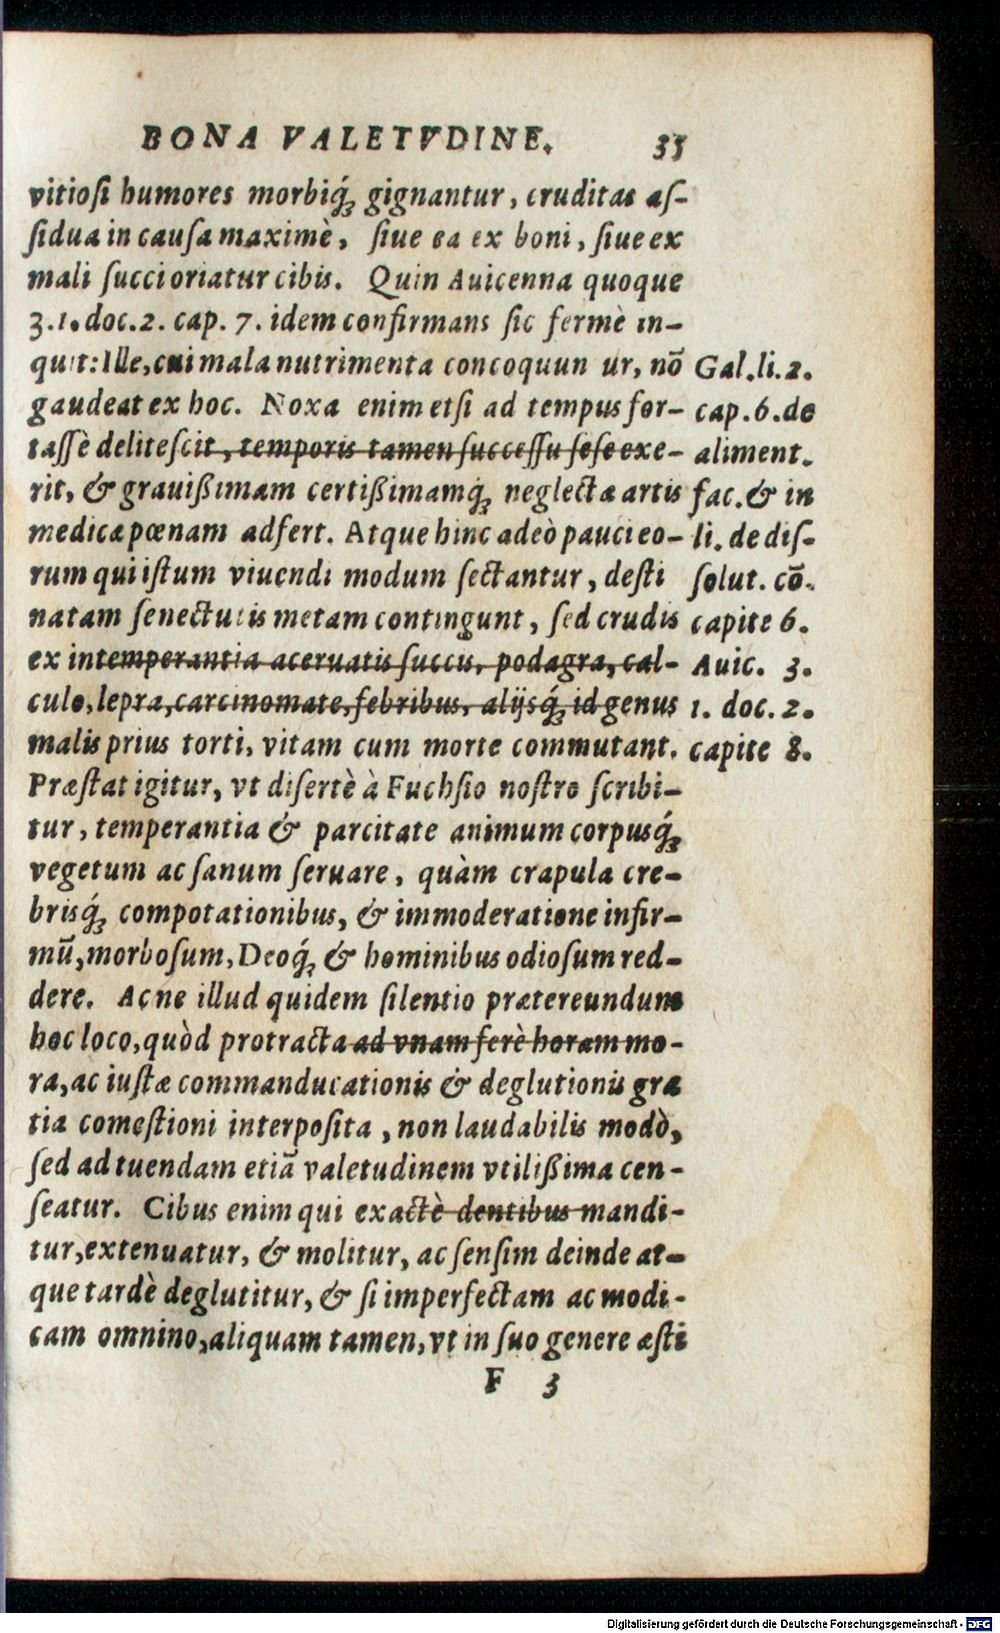 BONA VALETVDINE. 35
vitiosi humores morbiq́; gignantur, cruditas as-
sidua in causa maximè, siue ea ex boni, siue ex
mali succi oriatur cibis. Quin Auicenna quoque
3.1.doc.2. cap. 7. idem confirmans sic fermè in-
quit: Ille, cui mala nutrimenta concoquun ur, nō
gaudeat ex hoc. Noxa enim etsi ad tempus for-
tassè delitescit, temporis tamen successu sese exe-
rit, & grauißimam certißimamq́; neglectæ artis
medicæ pœnam adfert. Atque hinc adeò pauci eo-
rum qui istum viuendi modum sectantur, desti
natam senectutis metam contingunt, sed crudis
ex intemperantia aceruatis succis, podagra, cal-
culo, lepra, carcinomate, febribus, alijsq́; id genus
malis prius torti, vitam cum morte commutant.
Præstat igitur, vt disertè à Fuchsio nostro scribi-
tur, temperantia & parcitate animum corpusq́;
vegetum ac sanum seruare, quàm crapula cre-
brisq́; compotationibus, & immoderatione infir-
mū, morbosum, Deoq́; & hominibus odiosum red-
dere. Ac ne illud quidem silentio prætereundum
hoc loco, quòd protracta ad vnam ferè horam mo-
ra, ac iustæ commanducationis & deglutionis gra
tia comestioni interposita, non laudabilis modò,
sed ad tuendam etiā valetudinem vtilißima cen-
seatur. Cibus enim qui exactè dentibus mandi-
tur, extenuatur, & molitur, ac sensim deinde at-
que tardè deglutitur, & si imperfectam ac modi-
cam omnino, aliquam tamen, vt in suo genere æsti
F 3
Gal. li. 2.
cap. 6. de
aliment.
fac. & in
li. de dis-
solut. cō.
capite 6.
Auic. 3.
1. doc. 2.
capite 8.
Digitalisierung gefördert durch die Deutsche Forschungsgemeinschaft - DFG